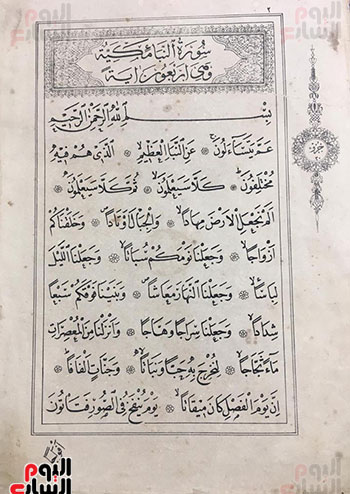 ٢
سورة النبأ مكية
وهي أربعون آية
بسم الله الرحمن الرحيم
عَمَّ يَتَسَاءَلُونَ عَنِ النَّبَإِ الْعَظِيمِ الَّذِي هُمْ فِيهِ
مُخْتَلِفُونَ كَلَّا سَيَعْلَمُونَ ثُمَّ كَلَّا سَيَعْلَمُونَ
أَلَمْ نَجْعَلِ الْأَرْضَ مِهَادًا وَالْجِبَالَ أَوْتَادًا وَخَلَقْنَاكُمْ
أَزْوَاجًا وَجَعَلْنَا نَوْمَكُمْ سُبَاتًا وَجَعَلْنَا اللَّيْلَ
لِبَاسًا وَجَعَلْنَا النَّهَارَ مَعَاشًا وَبَنَيْنَا فَوْقَكُمْ سَبْعًا
شِدَادًا وَجَعَلْنَا سِرَاجًا وَهَّاجًا وَأَنْزَلْنَا مِنَ الْمُعْصِرَاتِ
مَاءً ثَجَّاجًا لِنُخْرِجَ بِهِ حَبًّا وَنَبَاتًا وَجَنَّاتٍ أَلْفَافًا
إِنَّ يَوْمَ الْفَصْلِ كَانَ مِيقَاتًا يَوْمَ يُنْفَخُ فِي الصُّورِ فَتَأْتُونَ
اليوم السابع